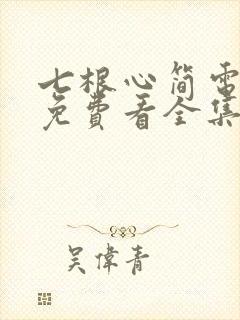 七根心简電
免費看全集
吴偉青